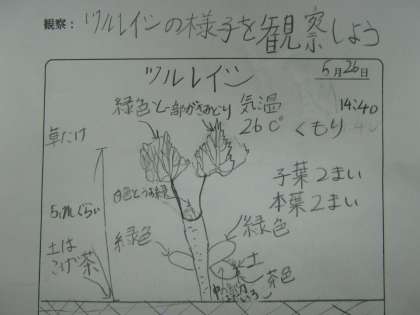 観察：ツルレイシの様子を観察しよう
ツルレイシ
5月26日
緑色と一部がきみどり
気温
26℃
14:40
くもり
草たけ
子葉2まい
本葉2まい
緑色
緑色
土は
こげ茶
土
茶色